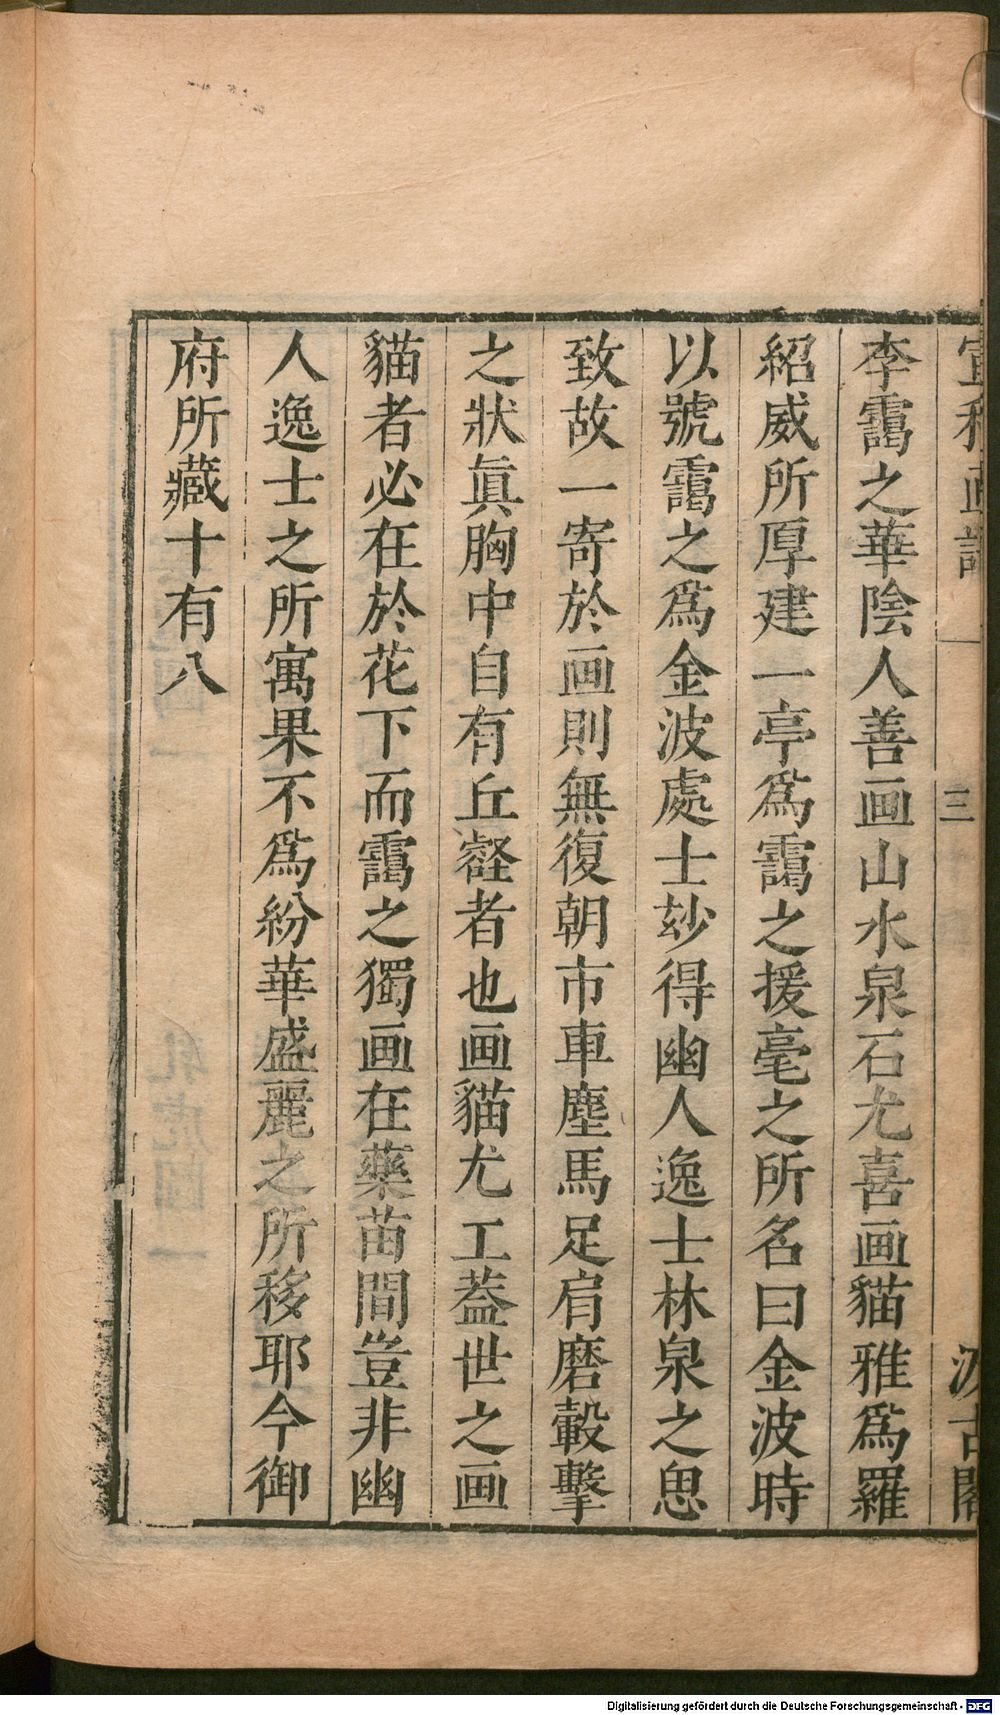 李靄之華陰人善画山水泉石尤喜画貓雅爲羅
紹威所厚建一亭爲靄之援毫之所名曰金波時
以號靄之爲金波處士玅得幽人逸士林泉之思
致故一寄於画則無復朝市車塵馬足肩磨轂擊
之狀眞胸中自有丘壑者也画貓尤工葢世之画
貓者必在於花下而靄之獨画在藥苗間豈非幽
人逸士之所寓果不爲紛華盛麗之所移耶今御
府所藏十有八
三
Digitalisierung gefördert durch die Deutsche Forschungsgemeinschaft - DFG